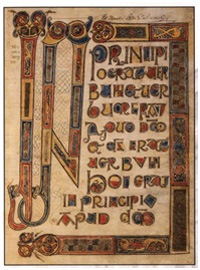 IN PRINCIPI
O ERAT UER
BUM ET UER
BU ERAT
APUD DEO
ET DS ERAT
UERBUM
HOC ERAT
IN PRINCIPIO
APUD DEO